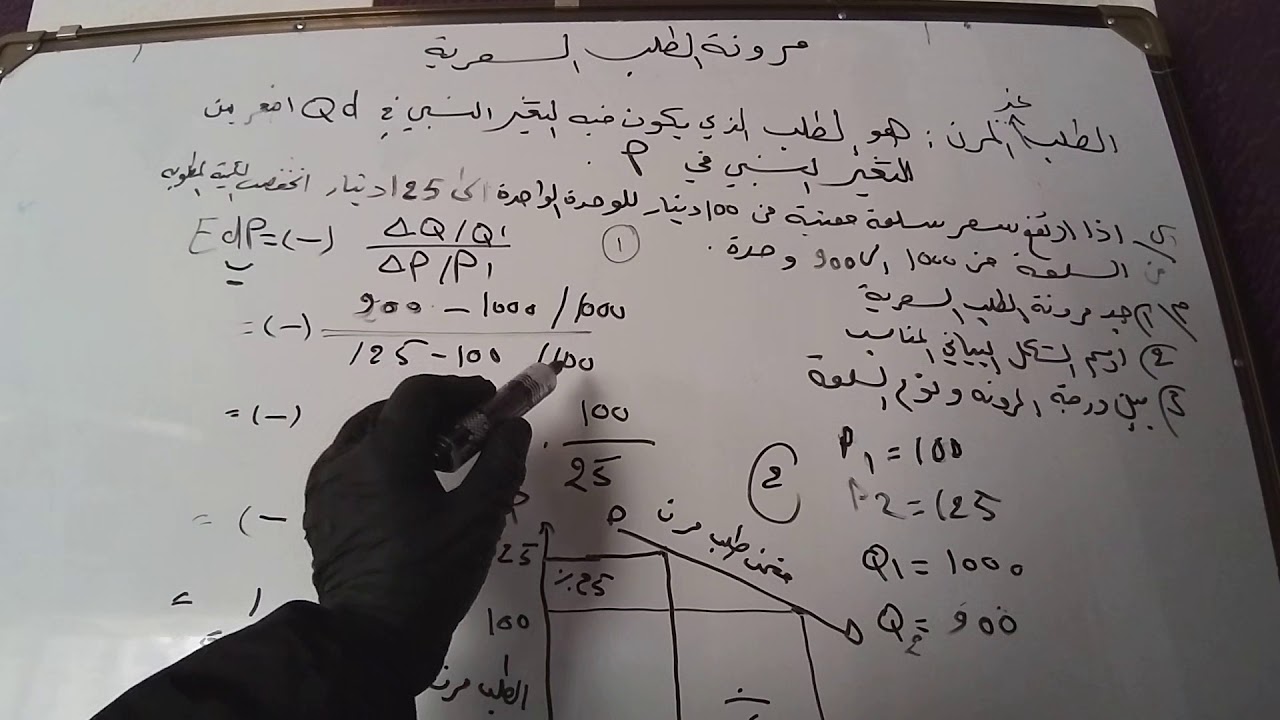 مرونة الطلب السعرية
غير
الطلب المرن : هو الطلب الذي يكون فيه التغير النسبي في Qd اصغر من
التغير النسبي في P .
س/ اذا ارتفع سعر سلعة معينة من 100 دينار للوحدة الواحدة الى 125 دينار انخفضت الكمية المطلوبة
من السلعة من 1000 الى 900 وحدة .
م/ 1) جد مرونة الطلب السعرية
2) ارسم الشكل البياني المناسب
3) بين درجة المرونة ونوع السلعة
P1 = 100
P2 = 125
Q1 = 1000
Q2 = 900
1
EdP = (-) ΔQ/Q1
ΔP/P1
= (-) 900 - 1000 / 1000
125 - 100 / 100
= (-) . 100
25
= (-
= 1
2
P
D منحنى طلب مرن
25
%25
100
D
الطلب مرن